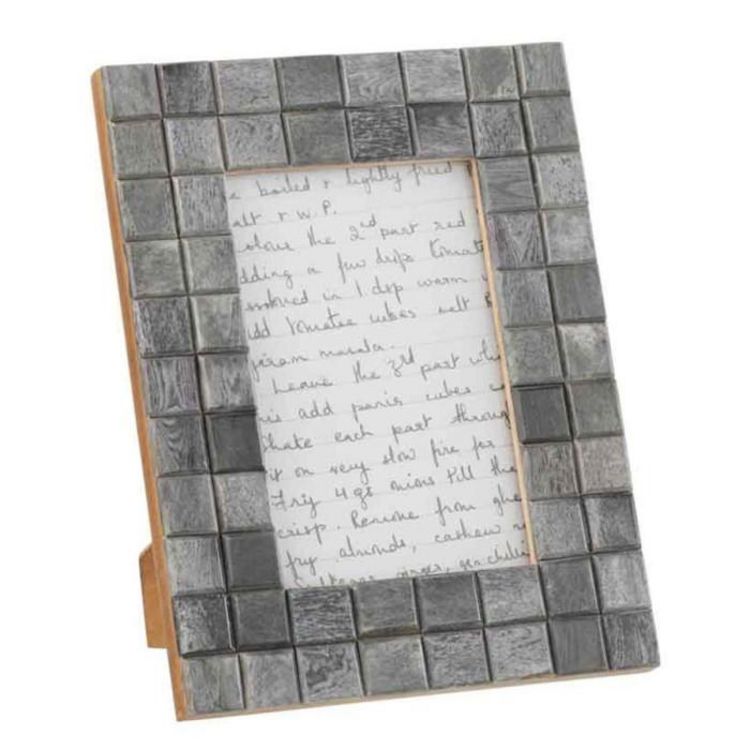 e boiled & lightly fried
alt & W.P.
olour the 2nd part red
dding a few drops tomato
ssolved in 1 dsp warm w
dd tomatoe cubes salt &
garam masala.
Leave the 3rd part whi
add panir cubes
each part through
it on very slow fire for
Fry 4 onions till the
crisp. Remove from ghe
fry almonds, cashew n
ginger, green chilli